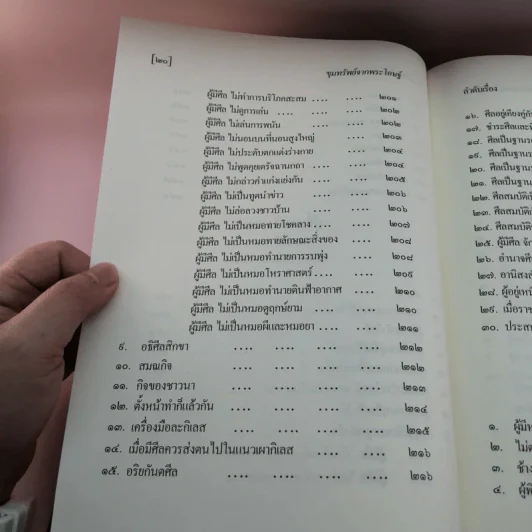 [๒๐]
ขุมทรัพย์จากพระโอษฐ์
ผู้มีศีล ไม่ทำการบริโภคสะสม .... .... ๒๐๑
ผู้มีศีล ไม่ดูการเล่น .... .... ๒๐๒
ผู้มีศีล ไม่เล่นการพนัน .... .... ๒๐๒
ผู้มีศีล ไม่นอนบนที่นอนสูงใหญ่ .... ๒๐๓
ผู้มีศีล ไม่ประดับตกแต่งร่างกาย .... ๒๐๔
ผู้มีศีล ไม่พูดคุยดิรัจฉานกถา .... .... ๒๐๔
ผู้มีศีล ไม่กล่าวคำแก่งแย่งกัน .... .... ๒๐๕
ผู้มีศีล ไม่เป็นทูตนำข่าว .... .... ๒๐๖
ผู้มีศีล ไม่ล่อลวงชาวบ้าน .... .... ๒๐๖
ผู้มีศีล ไม่เป็นหมอทายโชคลาง .... .... ๒๐๗
ผู้มีศีล ไม่เป็นหมอทายลักษณะสิ่งของ .... ๒๐๘
ผู้มีศีล ไม่เป็นหมอทำนายการรบพุ่ง .... ๒๐๘
ผู้มีศีล ไม่เป็นหมอโหราศาสตร์ .... .... ๒๐๙
ผู้มีศีล ไม่เป็นหมอทำนายดินฟ้าอากาศ .... ๒๑๐
ผู้มีศีล ไม่เป็นหมอดูฤกษ์ยาม .... .... ๒๑๐
ผู้มีศีล ไม่เป็นหมอผีและหมอยา .... .... ๒๑๑
๙. อธิศีลสิกขา .... .... .... .... ๒๑๒
๑๐. สมณกิจ .... .... .... .... ๒๑๒
๑๑. กิจของชาวนา .... .... .... .... ๒๑๓
๑๒. ตั้งหน้าทำก็แล้วกัน .... .... .... .... ๒๑๔
๑๓. เครื่องมือละกิเลส .... .... .... .... ๒๑๕
๑๔. เมื่อมีศีลควรส่งตนไปในแนวเผากิเลส .... .... ๒๑๖
๑๕. อริยกันตศีล .... .... .... .... ๒๑๖
ลำดับเรื่อง
๑๖. ศีลอยู่เคียงคู่กั
๑๗. ชำระศีลและทิ
๑๘. ศีลเป็นฐานร
๑๙. ศีลเป็นฐานร
๒๐. ศีลเป็นฐานร
๒๑. ศีลเป็นฐาน
๒๒. ศีลสมบัติเป็
๒๓. ศีลสมบัติเ
๒๔. ศีลสมบัติ
๒๕. ผู้มีศีล จัก
๒๖. อำนาจศีล
๒๗. อานิสงส์
๒๘. ผู้อยู่เหนื
๒๙. เมื่อราช
๓๐. ประสบ
๑. ผู้มี
๒. ไม่ต
๓. ช้าง
๔. ผู้พิ